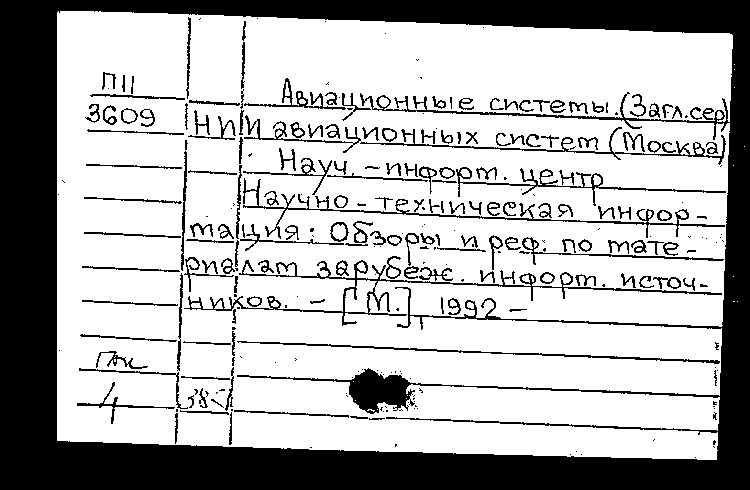 П11
3609
Авиационные системы. (Загл.сер)
НИИ авиационных систем (Москва)
Науч. -информ. центр
Научно-техническая инфор-
мация: Обзоры и реф. по мате-
риалам зарубеж. информ. источ-
ников. - [М.], 1992 -
ГАК
4